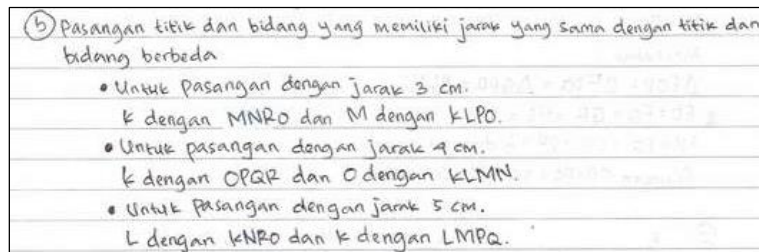 ⑤ Pasangan titik dan bidang yang memiliki jarak yang sama dengan titik dan
bidang berbeda
• Untuk pasangan dengan jarak 3 cm.
K dengan MNRO dan M dengan KLPO.
• Untuk pasangan dengan jarak 4 cm.
K dengan OPQR dan O dengan KLMN.
• Untuk pasangan dengan jarak 5 cm.
L dengan KNRO dan K dengan LMPQ.